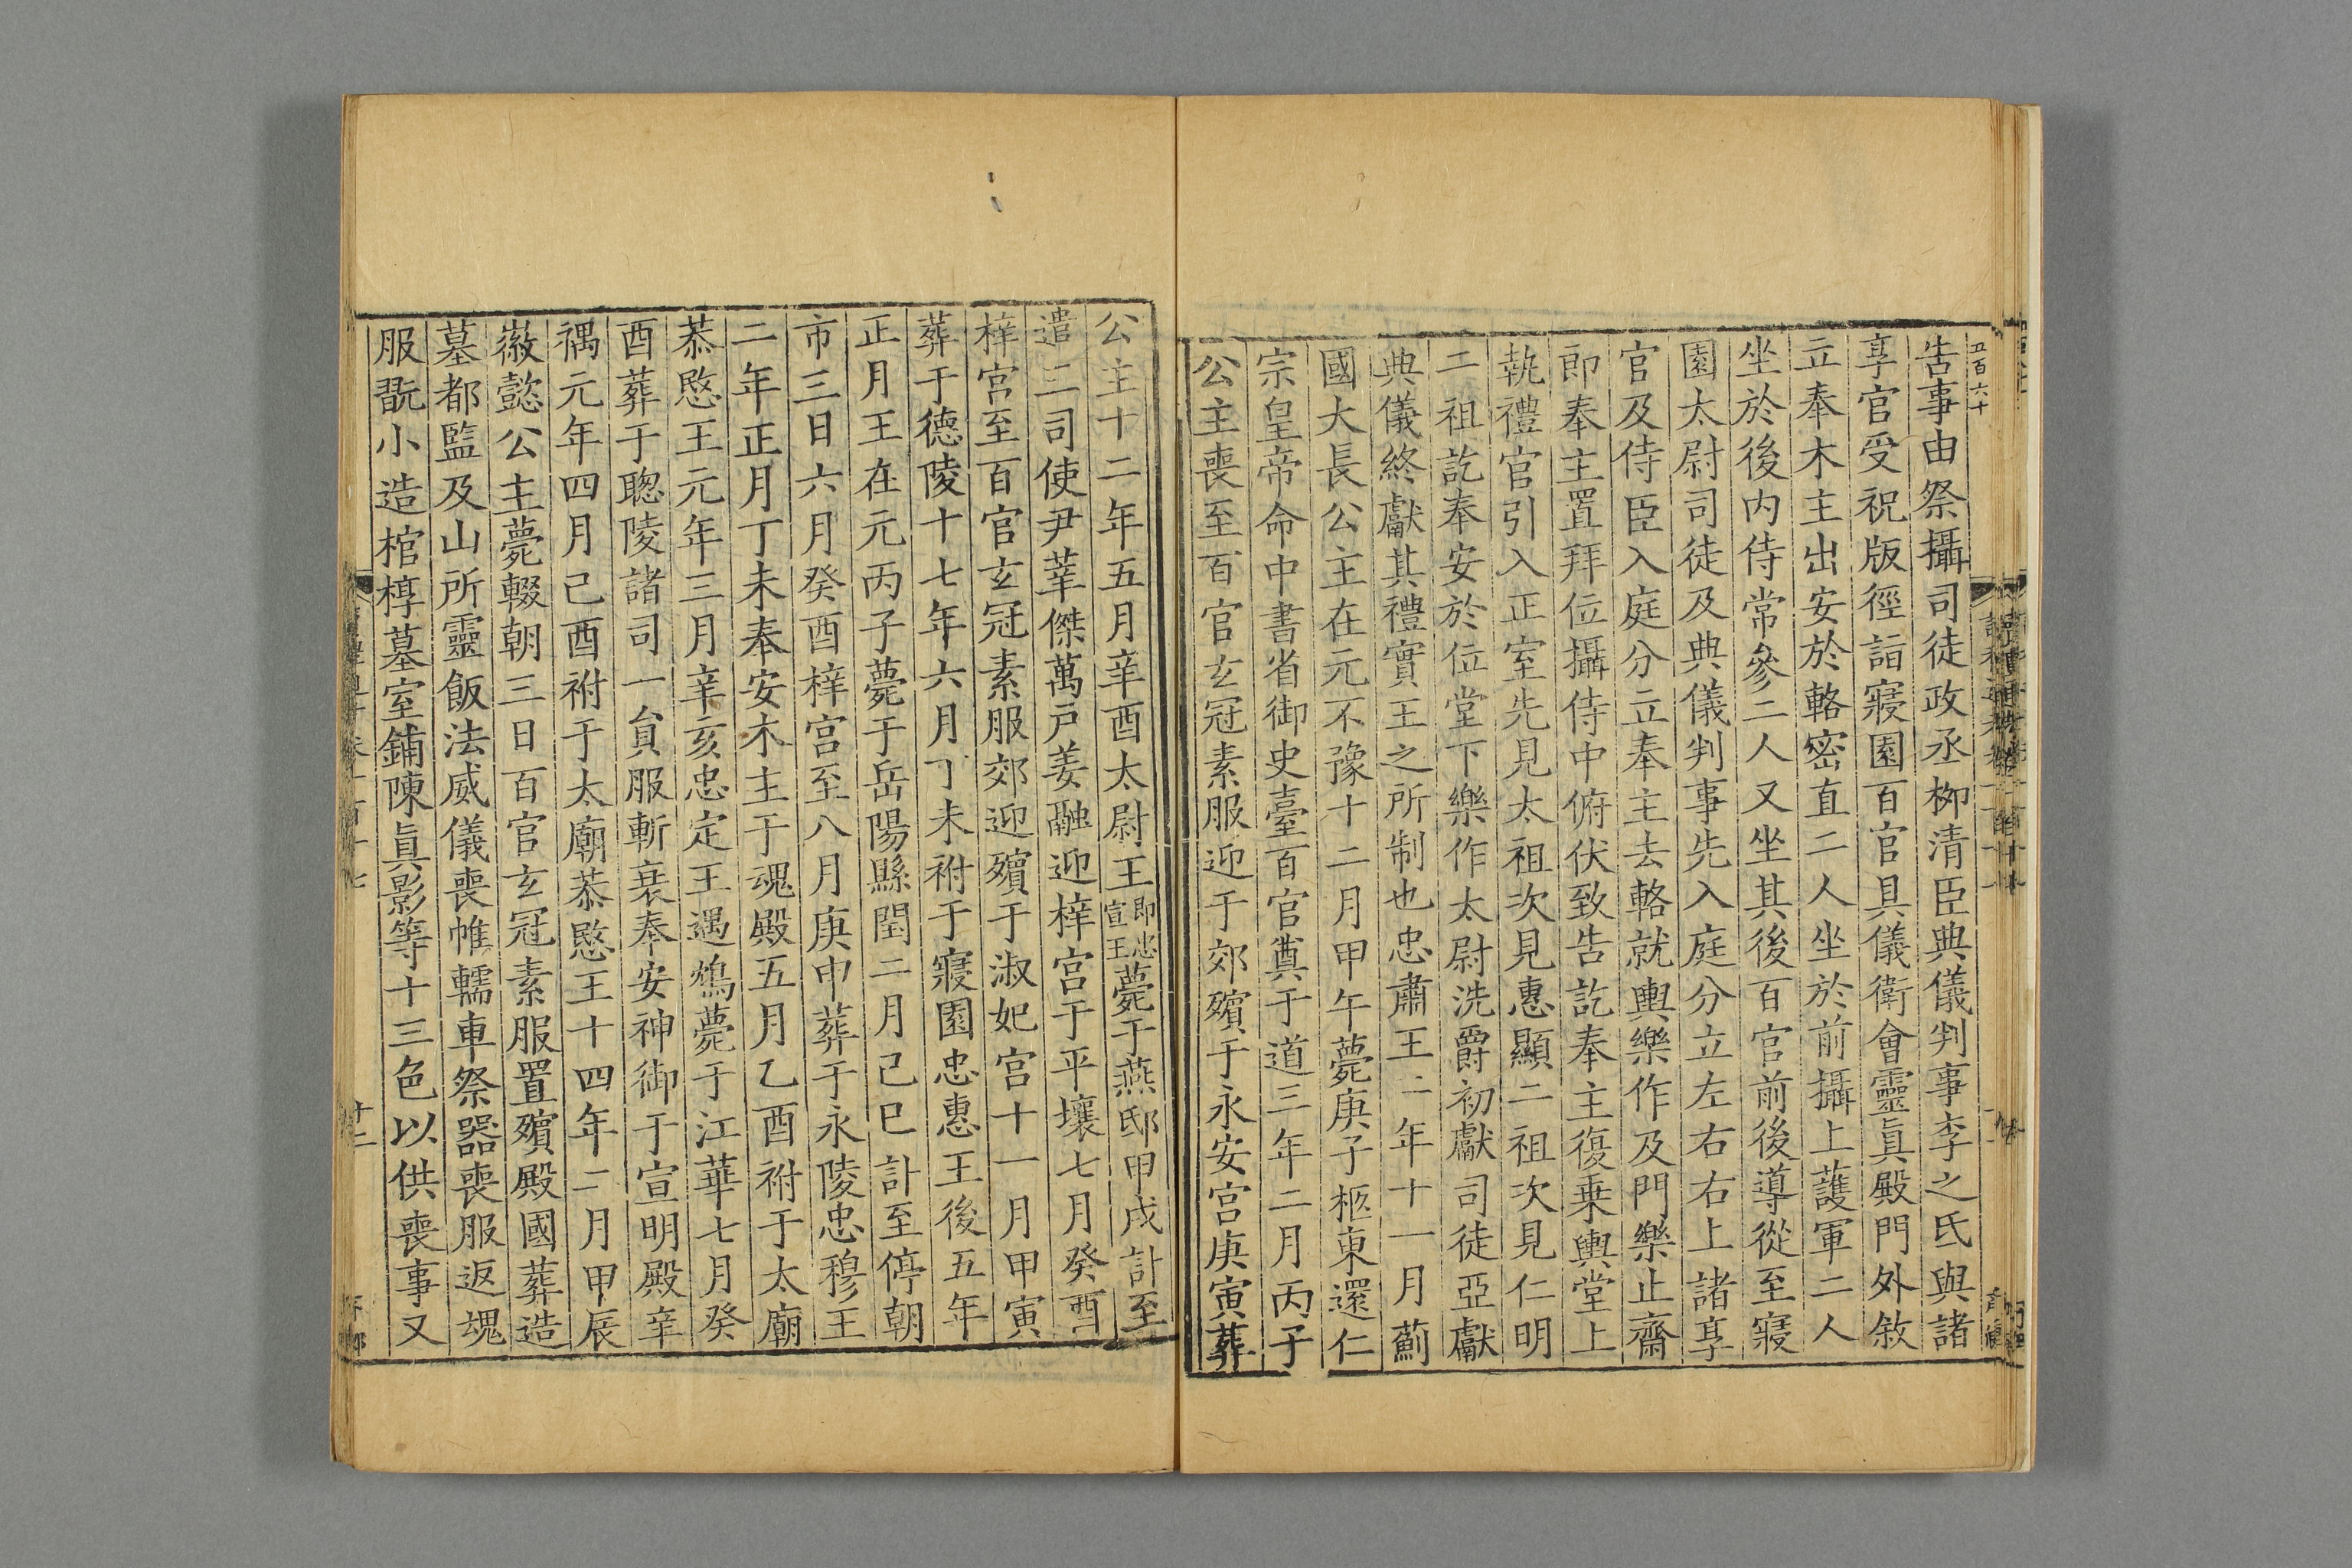 五百六十
告事由祭攝司徒政丞栁清臣典儀判事李之氐與諸
享官受祝版徑詣寢園百官具儀衛會靈眞殿門外敘
立奉木主出安於輅密直二人坐於前攝上護軍二人
坐於後内侍常參二人又坐其後百官前後導從至寢
園太尉司徒及典儀判事先入庭分立左右右上諸享
官及侍臣入庭分立奉主去輅就輿樂作及門樂止齋
即奉主置拜位攝侍中俯伏致告訖奉主復乗輿堂上
執禮官引入正室先見太祖次見惠顯二祖次見仁明
二祖訖奉安於位堂下樂作太尉洗爵初獻司徒亞獻
典儀終獻其禮實王之所制也忠肅王二年十一月薊
國大長公主在元不豫十二月甲午薨庚子柩東還仁
宗皇帝命中書省御史臺百官奠于道三年二月丙子
公主喪至百官玄冠素服迎于郊殯于永安宮庚寅葬
公主十二年五月辛酉太尉王即忠宣王薨于燕邸甲戌訃至
遣三司使尹莘傑萬戸姜融迎梓宮于平壤七月癸酉
梓宮至百官玄冠素服郊迎殯于淑妃宮十一月甲寅
葬于德陵十七年六月丁未祔于寢園忠惠王後五年
正月王在元丙子薨于岳陽縣閏二月己巳訃至停朝
市三日六月癸酉梓宮至八月庚申葬于永陵忠穆王
二年正月丁未奉安木主于魂殿五月乙酉祔于太廟
恭愍王元年三月辛亥忠定王遇鴆薨于江華七月癸
酉葬于聰陵諸司一負服斬衰奉安神御于宣明殿辛
禑元年四月己酉祔于太廟恭愍王十四年二月甲辰
徽懿公主薨輟朝三日百官玄冠素服置殯殿國葬造
墓都監及山所靈飯法威儀喪帷轜車祭器喪服返魂
服翫小造棺槨墓室鋪陳眞影等十三色以供喪事又
十二